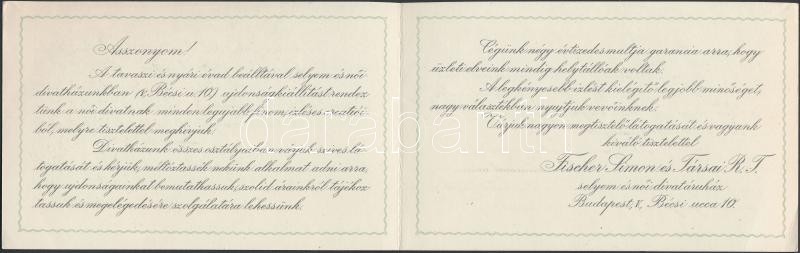 Asszonyom!
A tavaszi és nyári évad beálltával selyem és női
divatházunkban (V. Bécsi u. 10) ujdonságkiállitást rendez
tünk a női divatnak minden legujabb, finom, izléses
ból, melyre tisztelettel meghívjuk.
Divatházunk összes osztályaiban várjuk szíves lá
togatását és kérjük, méltóztassék nekünk alkalmat adni arra,
hogy ujdonságainkat bemutathassuk, szolid árainkról tájékoz
tassuk és megelégedésére szolgálatára lehessünk.
Cégünk négy évtizedes multja garancia arra, hogy
üzleti elveink mindig helytállóak voltak.
A legkényesebb izlést kielégitő legjobb minőséget,
nagy választékban nyujtjuk vevőinknek.
Várjuk nagyon megtisztelő látogatását és vagyunk
kiváló tisztelettel
Fischer Simon és Társai R. T.
selyem és női divatáruház
Budapest, V., Bécsi ucca 10.
darabanth